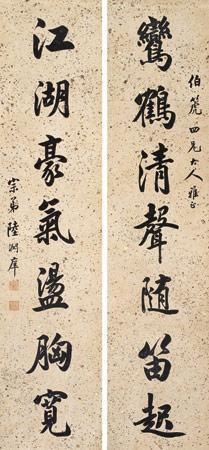 伯箎四兄大人雅正
鸞鶴清聲随笛起
江湖豪氣盪胸寬
宗弟陸潤庠